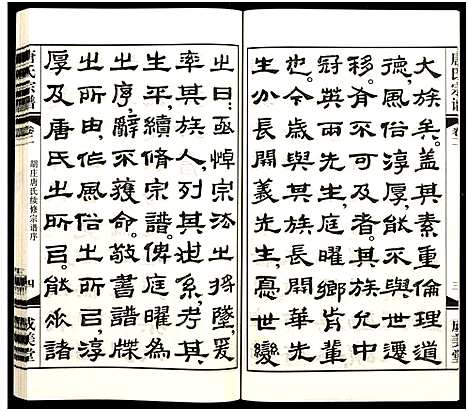 唐氏宗譜
卷二
三
咸美堂
大族矣。蓋其素重倫理道
德,風俗淳厚,能不與世遷
移。不可及者。其族
冠英兩先生,庭曜鄉肯輩
也。今歲其族長開華先
生分長開義先生,憂世變
之日亟,悼宗法之將墜,爰
率其族人,族系,考其
生平,續脩宗譜,俾庭曜為
之序,辭不獲命。敬書譜牒
之所由,風俗之所以淳
厚及唐氏之所以能諸
唐氏宗谱
卷二
胡庄唐氏续修宗谱序
四
咸美堂